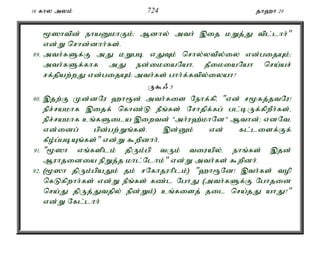 16 கால அலம் 724 தாஹா 20
மூஸாவின் நாயனுமாகும்; ஆனால் அவர் இதை மறந்து விட்டார்"
என்று சொன்னார்கள்.
89. அவர்களுக்கு அது மறுபடி எதுவும் சொல்லவில்லை என்பதையும்;
அவர்களுக்காக அது நன்மையையோ, தீமையையோ செய்யச்
சக்தியற்றது என்பதையும் அவர்கள் பார்க்கவில்லையா?
ருகூஃ 5
90. இதற்கு முன்னரே ஹாரூன் அவர்களை நோக்கி, "என் சமூகத்தவரே!
நிச்சயமாக இதைக் கொண்டு நீங்கள் சோதிக்கப் பட்டிருக்கிறீர்கள்.
நிச்சயமாக உங்களுடைய இறைவன் 'அர்ரஹ்மானே' ஆவான்; எனவே,
என்னைப் பின்பற்றுங்கள். இன்னும் என் கட்டளைக்குக்
கீழ்ப்படியுங்கள்" என்று கூறினார்.
91. "மூஸா எங்களிடம் திரும்பி வரும் வரையில், நாங்கள் இதன்
ஆராதனையை நிறுத்த மாட்டோம்" என்று அவர்கள் கூறினர்.
92. (மூஸா திரும்பியதும் தம் சகோதரரிடம்) "ஹாரூனே! இவர்கள் வழி
கெடுகிறார்கள் என்று நீங்கள் கண்ட போது (அவர்களுக்கு போதனை
செய்து திருத்துவதில் நின்றும்) உங்களைத் தடை செய்தது யாது?"
என்று கேட்டார்